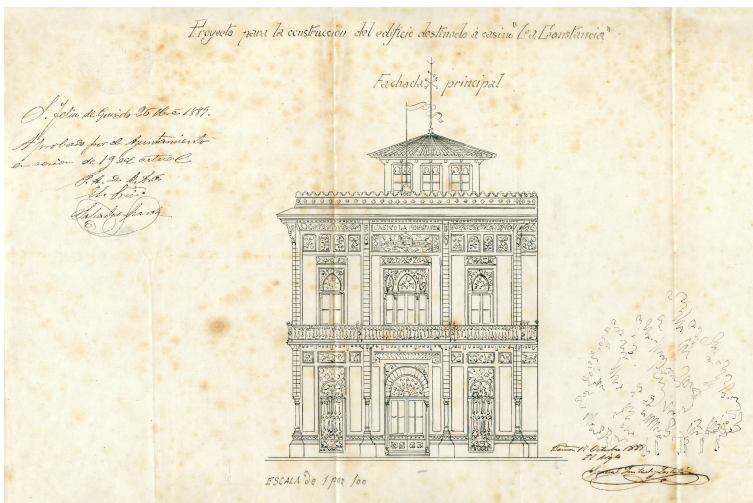 Proyecto para la construcción del edificio destinado á casino "La Constancia"
Fachada principal
S. Feliu de Guixols 26 1889.
Aprobado por el Ayuntamiento
en sesion de 19 del actual
P. A. D. A.
El
CASINO LA CONSTANCIA
ESCALA de 1 por 100
Octubre 1889